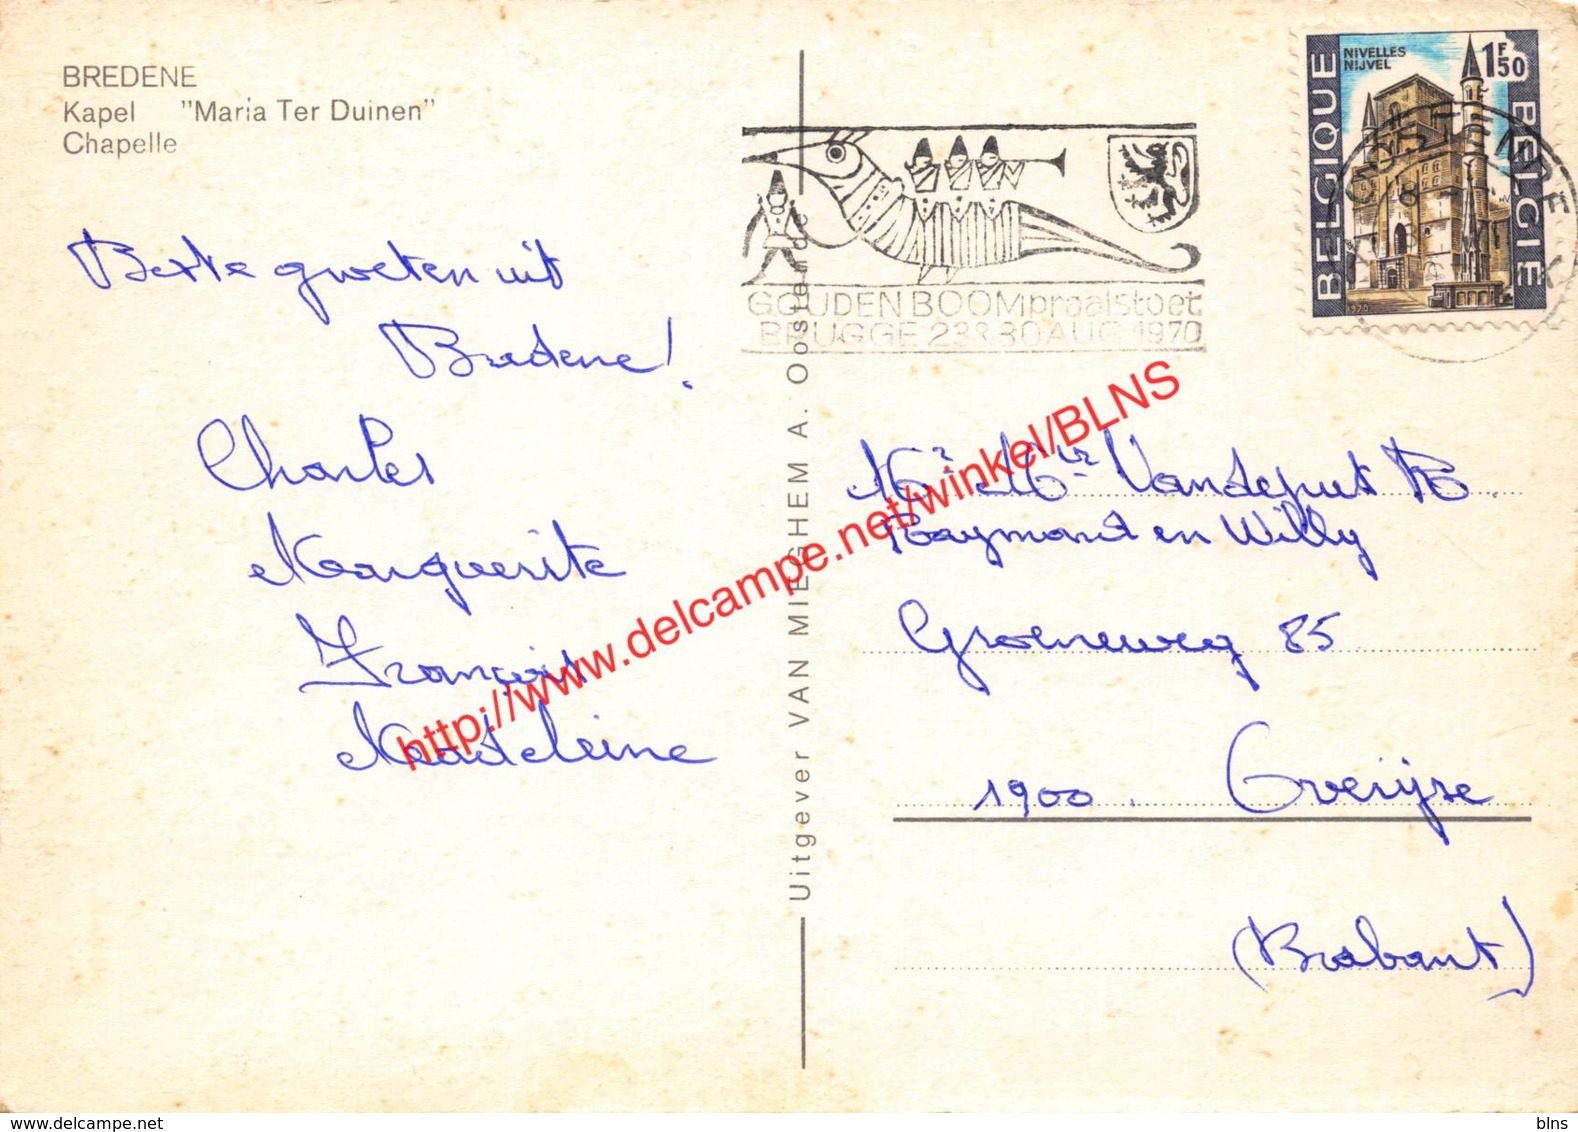 BREDENE
Kapel "Maria Ter Duinen"
Chapelle
Beste groeten uit
Bredene!
Charles
Marguerite
François
Madeleine
Uitgever VAN MIEGHEM A. Oostende
GOUDEN BOOM praalstoet
BRUGGE 23&30 AUG 1970
NIVELLES
NIJVEL
1F50
BELGIQUE
BELGIE
1970
OOSTENDE
Mr Mr Vandeput
Raymond en Willy
Groeneweg 85
1900 Overijse
(Brabant)
http://www.delcampe.net/winkel/BLNS
blns